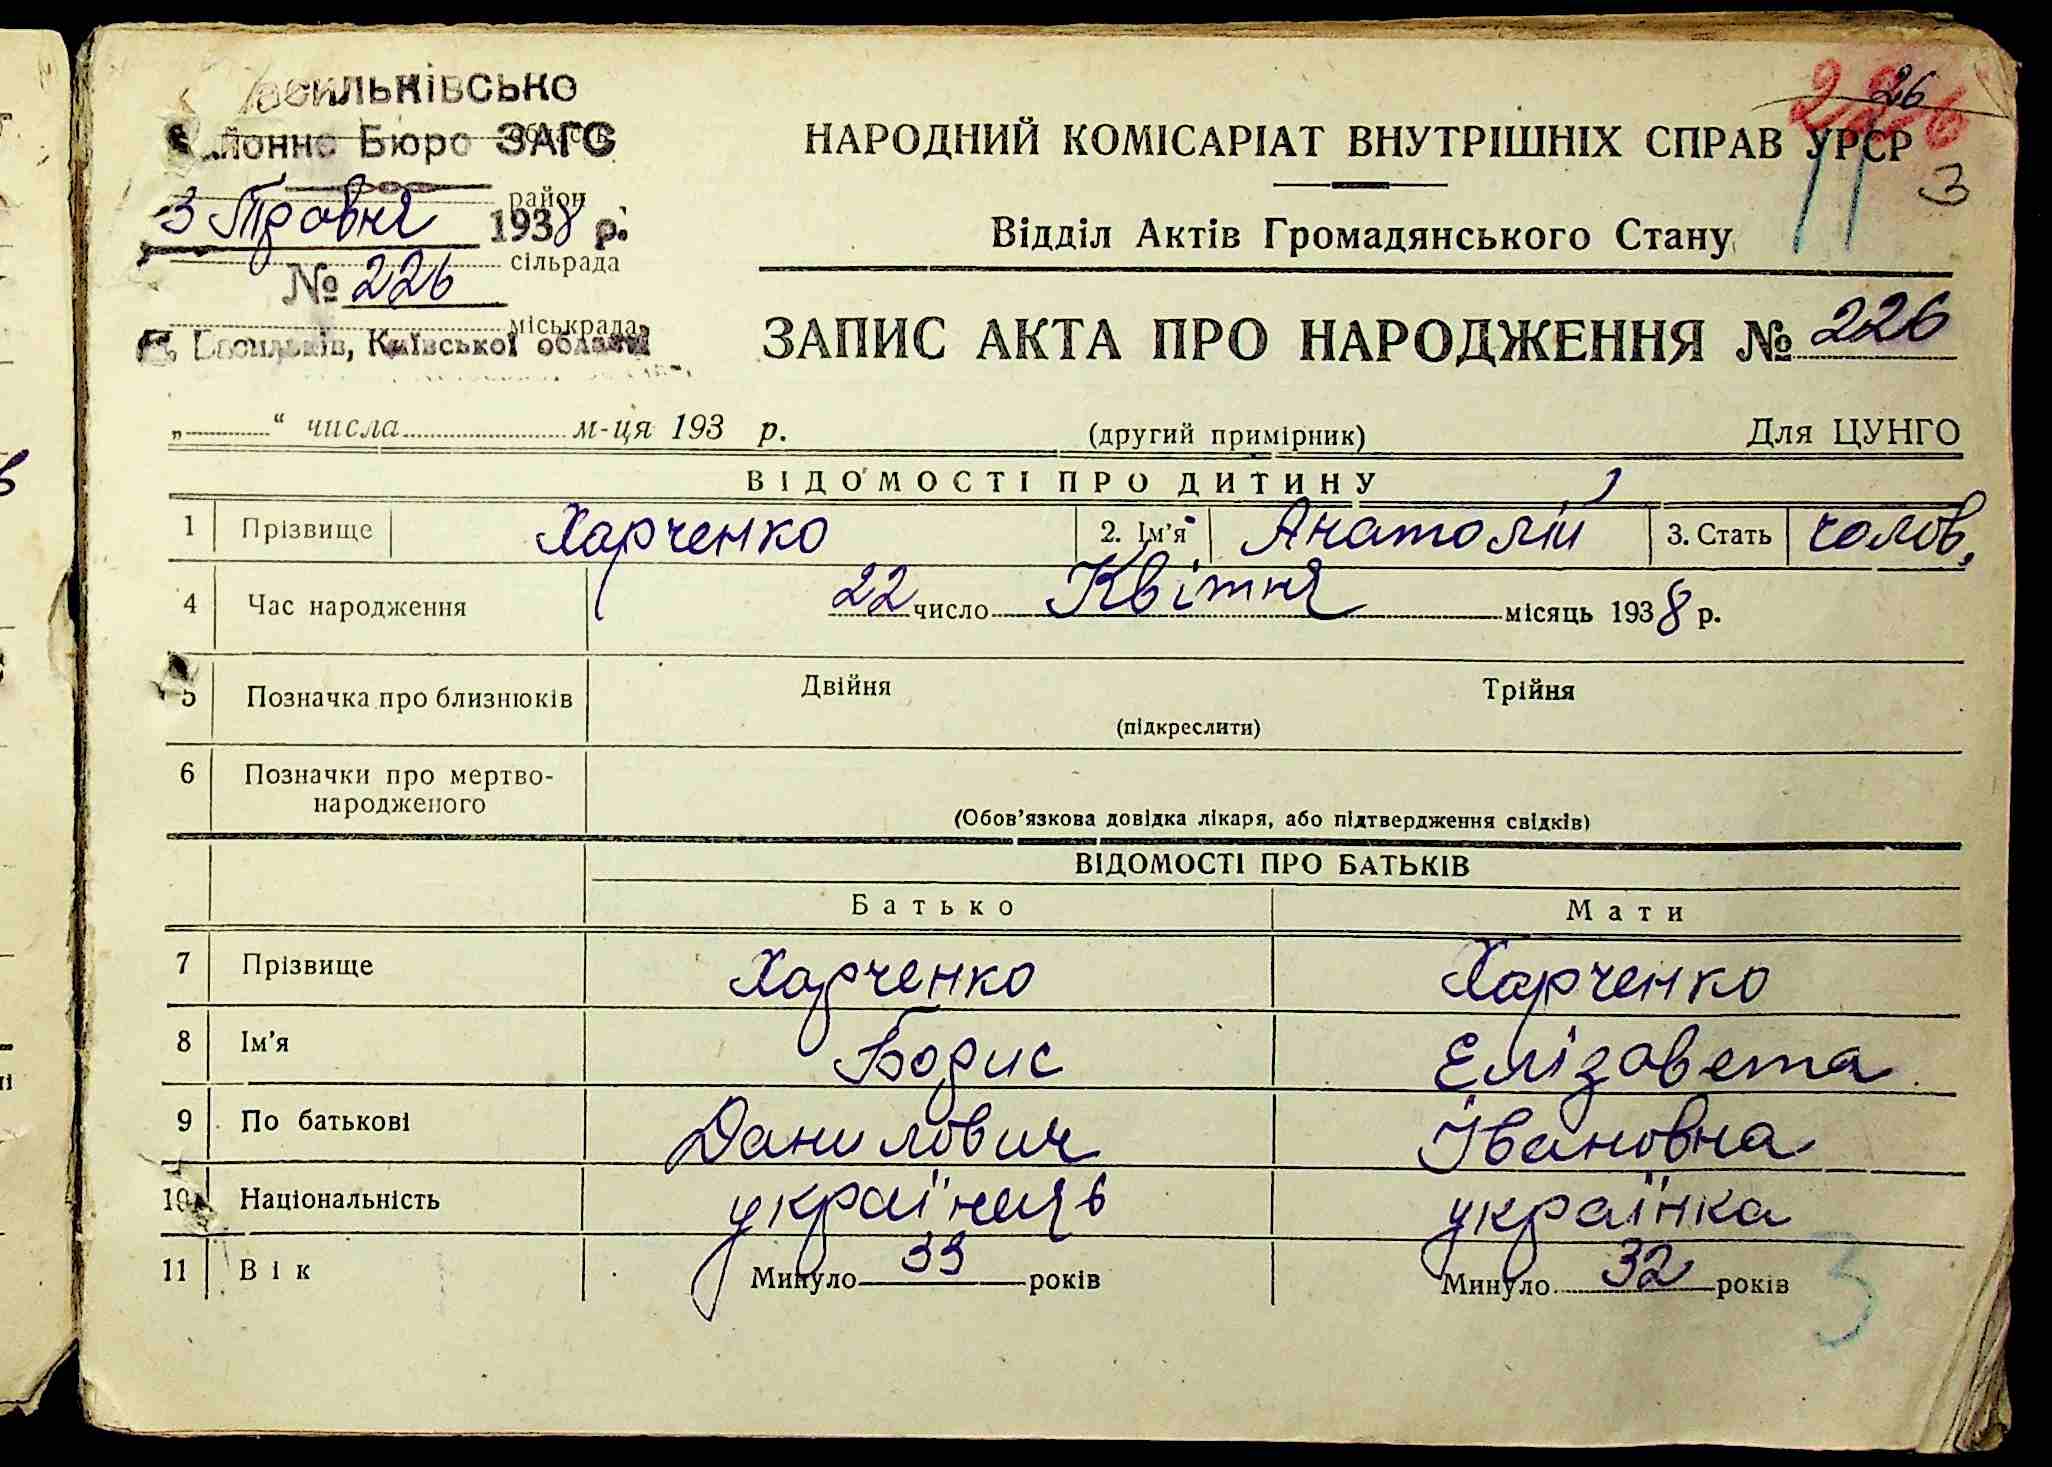 Васильківсько
Районне Бюро ЗАГС
район
3 Травня 1938 р.
сільрада
№ 226
міськрада
м. Васильків, Київської області
26
226
НАРОДНИЙ КОМІСАРІАТ ВНУТРІШНІХ СПРАВ УРСР
3
Відділ Актів Громадянського Стану
ЗАПИС АКТА ПРО НАРОДЖЕННЯ № 226
„ “ числа м-ця 193 р. (другий примірник) Для ЦУНГО
ВІДОМОСТІ ПРО ДИТИНУ
1 Прізвище Харченко 2. Ім'я Анатолій 3. Стать чолов.
4 Час народження 22 число Квітня місяць 1938 р.
5 Позначка про близнюків Двійня Трійня
(підкреслити)
6 Позначки про мертво-
народженого
(Обов'язкова довідка лікаря, або підтвердження свідків)
ВІДОМОСТІ ПРО БАТЬКІВ
Батько Мати
7 Прізвище Харченко Харченко
8 Ім'я Борис Єлізовета
9 По батькові Данилович Івановна
10 Національність україньць українка
11 Вік Минуло 33 років Минуло 32 років
3